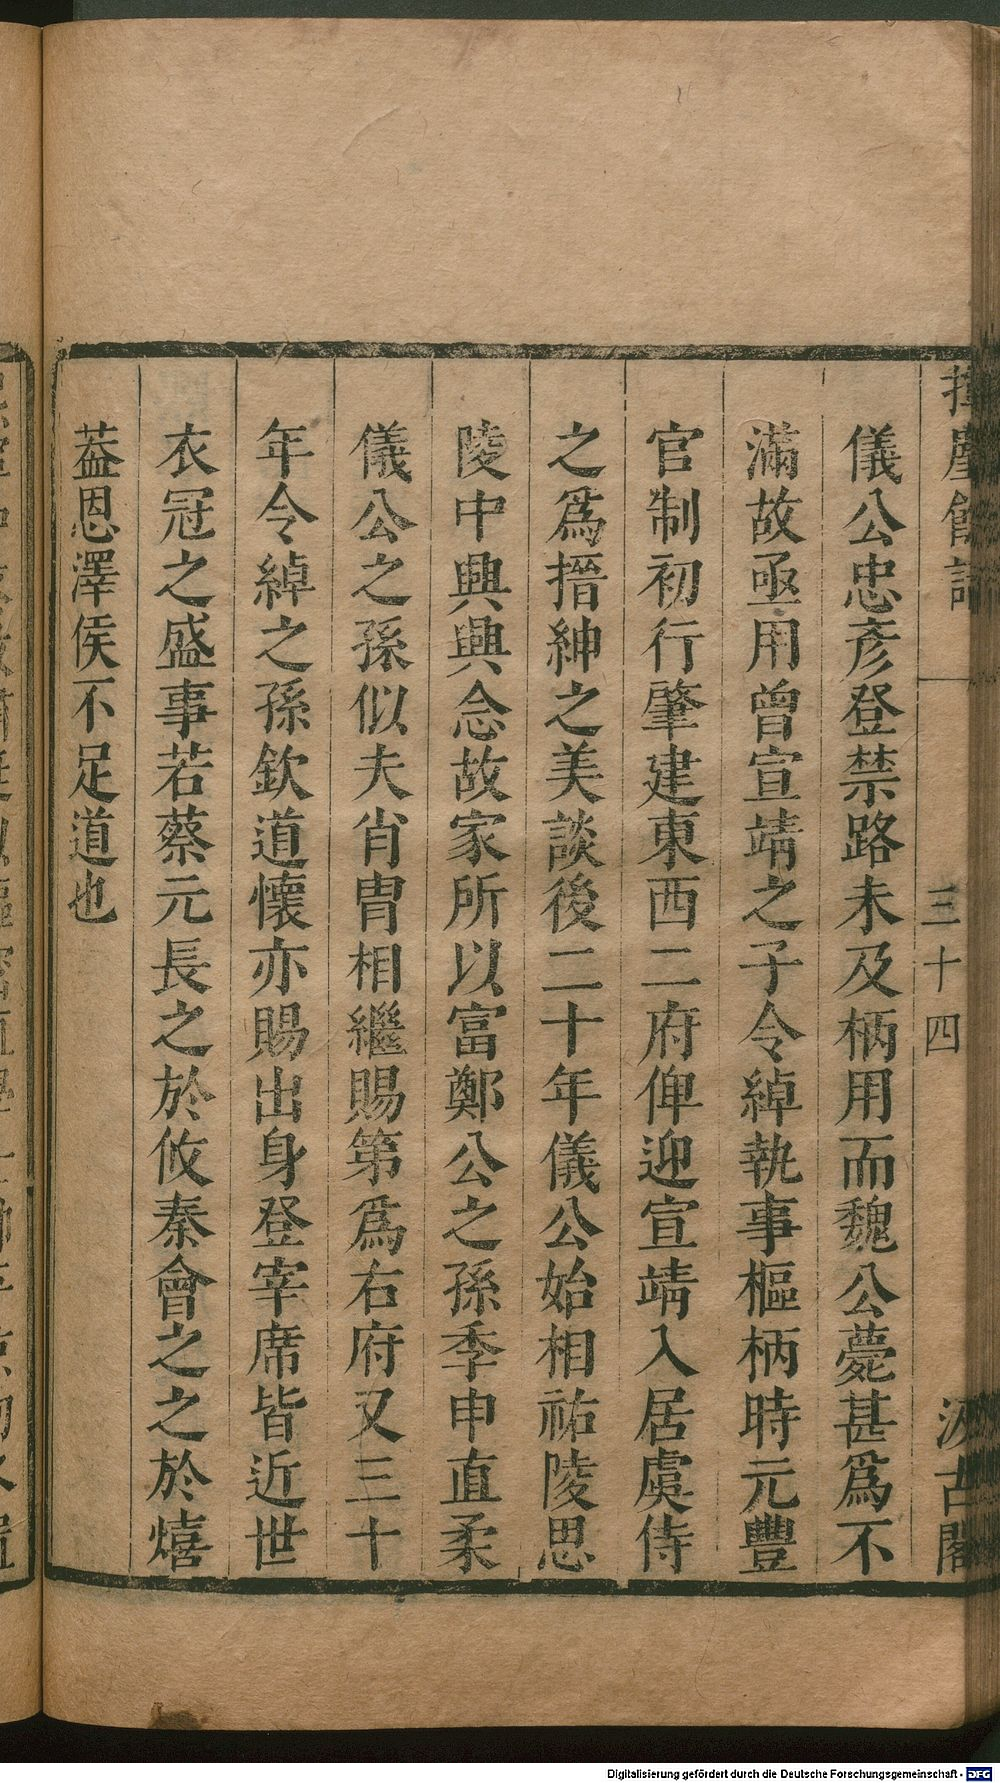 揮麈餘話
三十四
汲古閣
儀公忠彥登禁路未及柄用而魏公薨甚爲不
滿故亟用曾宣靖之子令綽執事樞柄時元豐
官制初行肇建東西二府俾迎宣靖入居虞侍
之爲搢紳之美談後二十年儀公始相祐陵思
陵中興興念故家所以富鄭公之孫季申直柔
儀公之孫似夫肖冑相繼賜第爲右府又三十
年令綽之孫欽道懷亦賜出身登宰席皆近世
衣冠之盛事若蔡元長之於攸秦會之之於熺
葢恩澤侯不足道也
Digitalisierung gefördert durch die Deutsche Forschungsgemeinschaft - DFG